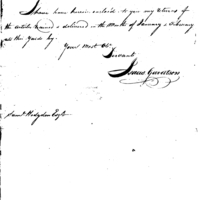 I have here in enclosed to you my returns of
the articles received & delivered in the Month of January & February
at this Yard by.
Your Most Obt
Servant
Isaac Garretson
Saml Hodgdon Esqr